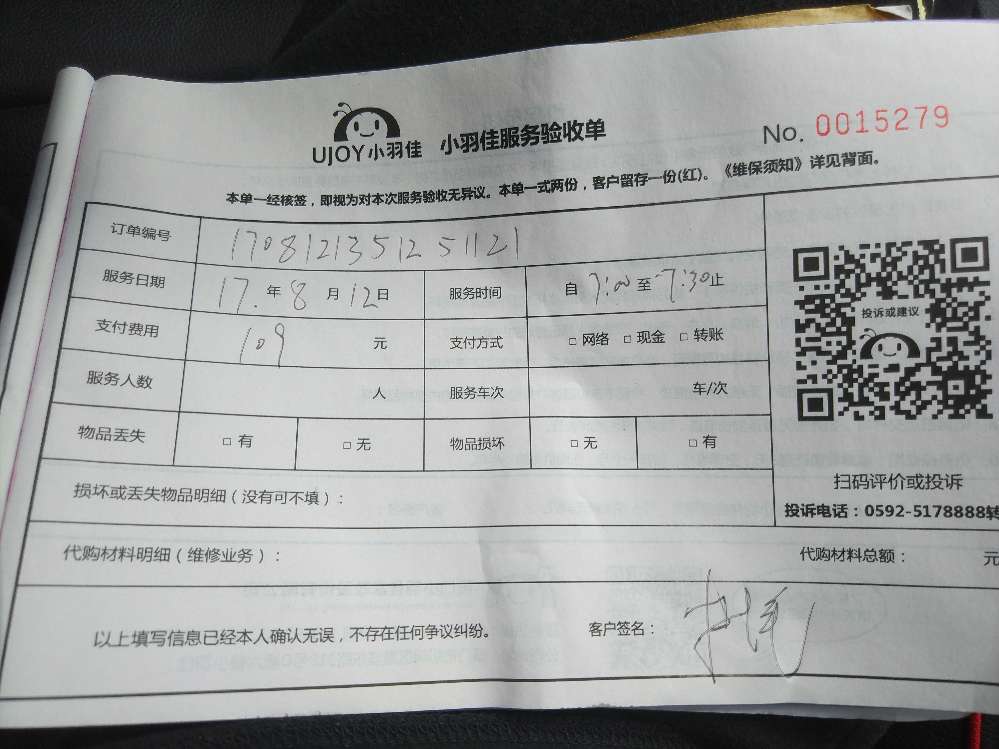 UJOY小羽佳 小羽佳服务验收单 No. 0015279
本单一经核签，即视为对本次服务验收无异议。本单一式两份，客户留存一份(红)。《维保须知》详见背面。
订单编号 17081213512 51121
服务日期 17. 年 8 月 12 日 服务时间 自 7:00 至 7:30 止
支付费用 109 元 支付方式 □ 网络 □ 现金 □ 转账
服务人数 人 服务车次 车/次
物品丢失 □ 有 □ 无 物品损坏 □ 无 □ 有
投诉或建议
扫码评价或投诉
投诉电话：0592-5178888转
损坏或丢失物品明细（没有可不填）：
代购材料明细（维修业务）： 代购材料总额： 元
以上填写信息已经本人确认无误，不存在任何争议纠纷。 客户签名：